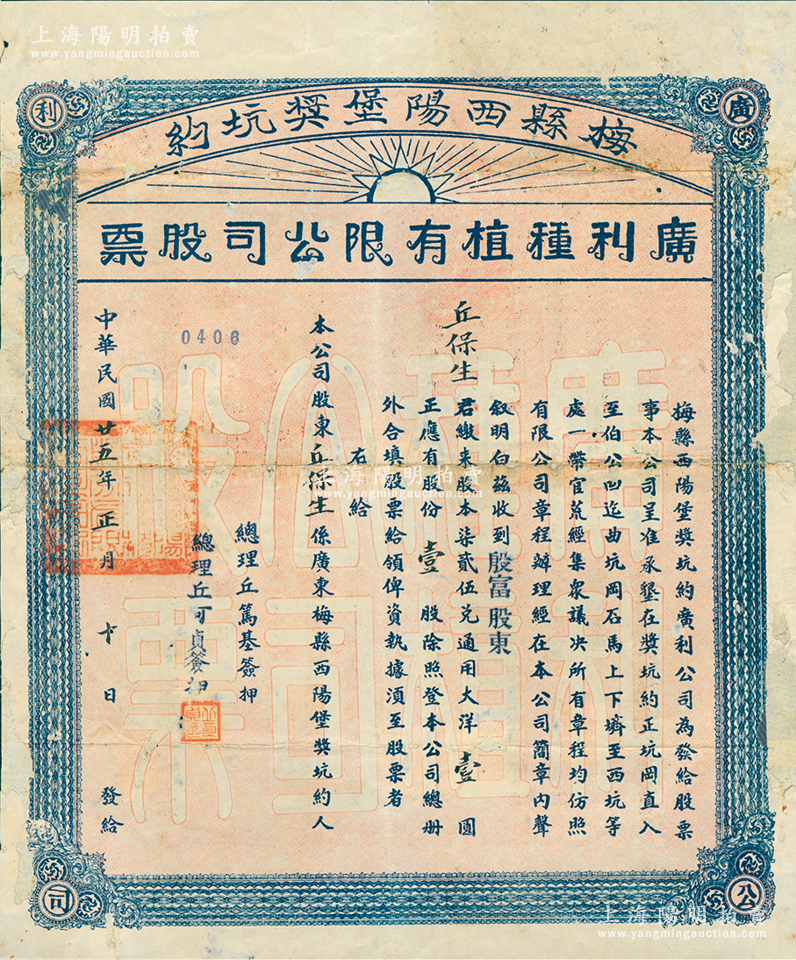 上海陽明拍賣
www.yangmingauction.com
廣
利
公
司
梅縣西陽堡獎坑約
廣利種植有限公司股票
梅縣西陽堡獎坑約廣利公司為發給股票
事本公司呈准承墾在獎坑約正坑岡直入
至伯公凹迄曲坑岡石馬上下壩至西坑等
處一帶官荒經集衆議決所有章程均仿照
有限公司章程辦理經在本公司簡章內聲
敘明白茲收到殷富股東
丘保生君繳來股本柒貳伍兌通用大洋壹圓
正應有股份壹股除照登本公司總册
外合填股票給領俾資執據須至股票者
右給
本公司股東丘保生係廣東梅縣西陽堡獎坑約人
總理丘篤基簽押
總理丘可貞簽押
0406
中華民國廿五年正月十日發給
廣利種植公司股票
上海陽明拍賣
www.yangmingauction.com
上海陽明拍賣
www.yangmingauction.com